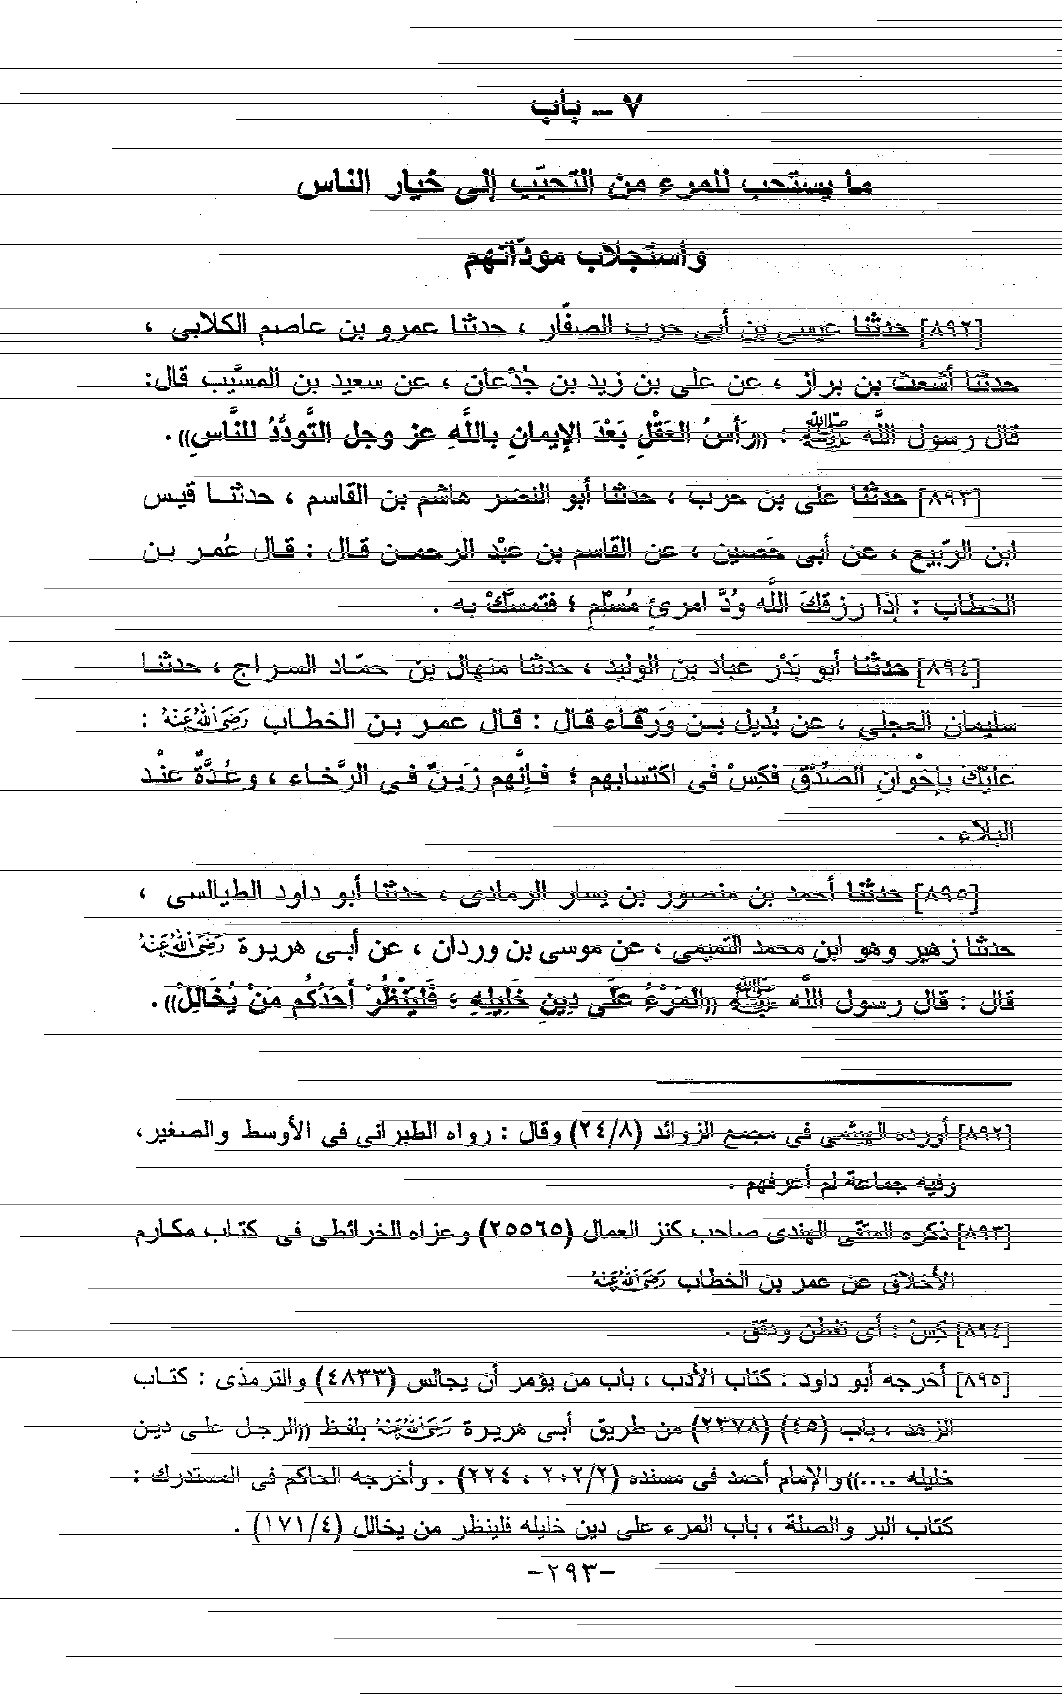 ٧ – باب
ما يستحب للمرء من التحبّب إلى خيار الناس
واستجلاب مودّاتهم
[٨٩٢] حدثنا عيسى بن أبي حرب الصفّار ، حدثنا عمرو بن عاصم الكلابى ،
حدثنا أشعث بن براز ، عن على بن زيد بن جُدْعان ، عن سعيد بن المسيَّب قال:
قال رسول اللَّه ﷺ : «رَأسُ العَقْلِ بَعْدَ الإيمانِ باللَّهِ عز وجل التَّودُّدُ للنَّاسِ» .
[٨٩٣] حدثنا على بن حرب ، حدثنا أبو النضر هاشم بن القاسم ، حدثنا قيس
ابن الرّبيع ، عن أبى حَصين ، عن القاسم بن عبْد الرحمن قال : قال عُمر بن
الخطاب : إذا رزقكَ اللَّه وُدَّ امرئٍ مُسْلِمٍ ؛ فتمسكْ به .
[٨٩٤] حدثنا أبو بَدْر عباد بن الوليد ، حدثنا منهال بن حمّاد السراج ، حدثنا
سليمان العجلي ، عن بُديل بن وَرقَاء قال : قال عمر بن الخطاب رضي الله عنه :
عليْكَ بإخْوانِ الصِّدْقِ فكِسْ فى اكتسابهم ؛ فإنَّهم زَيـنٌ فى الرَّخاء ، وعُدَّةٌ عنْد
البلاء .
[٨٩٥] حدثنا أحمد بن منصور بن يسار الرمادى ، حدثنا أبو داود الطيالسى ،
حدثنا زهير وهو ابن محمد التميمي ، عن موسى بن وردان ، عن أبى هريرة رضي الله عنه
قال : قال رسول اللَّه ﷺ «المَرْءُ عَلَى دِينِ خَلِيلِهِ ؛ فَلْيَنْظُرْ أَحَدُكُم مَنْ يُخَالِلْ» .
[٨٩٢] أورده الهيثمى فى مجمع الزوائد (٢٤/٨) وقال : رواه الطبرانى فى الأوسط والصغير،
وفيه جماعة لم أعرفهم .
[٨٩٣] ذكره المتقى الهندى صاحب كنز العمال (٢٥٥٦٥) وعزاه للخرائطى فى كتاب مكارم
الأخلاق عن عمر بن الخطاب رضي الله عنه
[٨٩٤] كِسْ : أى تفطن ودقق .
[٨٩٥] أخرجه أبو داود : كتاب الأدب ، باب من يؤمر أن يجالس (٤٨٣٣) والترمذى : كتاب
الزهد ، باب (٤٥) (٢٣٧٨) من طريق أبى هريرة رضي الله عنه بلفظ «الرجل على دين
خليله ....» والإمام أحمد فى مسنده (٢٠٢/٢ ، ٢٢٤) . وأخرجه الحاكم فى المستدرك :
كتاب البر والصلة ، باب المرء على دين خليله فلينظر من يخالل (١٧١/٤) .
-٢٩٣-